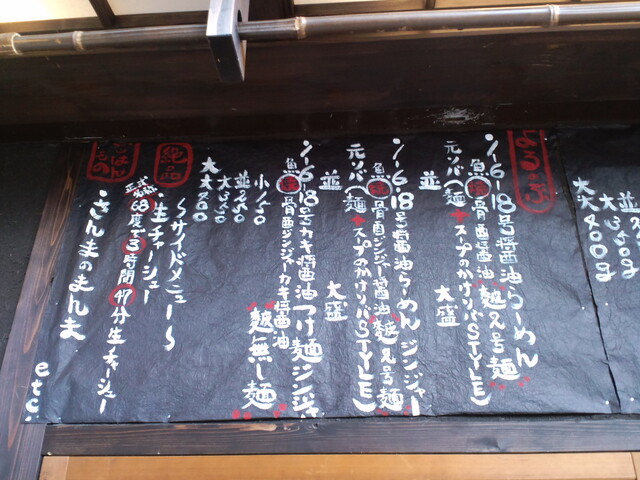 1-6-18号醤油らーめん
魚骨醤醤油
麺2号麺
元ソバ(麺+スープのかけソバSTYLE)
並
大盛
1-6-18号醤油らーめん ジンジャー
魚骨酉ジンジャー醤油
麺2号麺
元ソバ(麺+スープのかけソバSTYLE)
並
大盛
1-6-18号カキ醤油つけ麺ジンジャ
魚骨酉ジンジャーカキ醤油
麺無し麺
小150
並250
大350
絶品
〜サイドメニュー〜
生チャーシュー
正式名称
68度で3時間47分生チャーシュー
ごはんもの
さんまのまんま
etc.
並2
大350g
大大400g